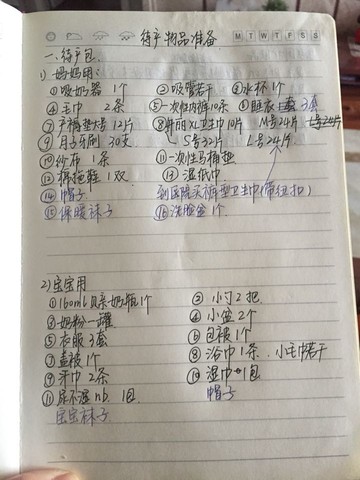 待产物品准备 M T W T F S S
一、待产包
1) 妈妈用:
①吸奶器 1个 ②吸管若干 ③水杯1个
④毛巾 2条 ⑤一次性内裤10条 ⑥睡衣 3套
⑦产褥垫大号12片 ⑧卫生巾10片 M号24片 L号24片
⑨月子牙刷 30支 S号32片 L号24片
⑩纱布 1条 ⑪一次性马桶垫
⑫棉拖鞋1双 ⑬湿纸巾
⑭帽子 到医院买裤型卫生巾(带纽扣)
⑮保暖袜子 ⑯洗脸盆1个
2) 宝宝用
①160ml贝亲奶瓶1个 ②小勺2把
③奶粉一罐 ④小盆2个
⑤衣服3套 ⑥包被1个
⑦盖被1个 ⑧浴巾1条、小毛巾若干
⑨牙巾2条 ⑩湿巾1包
⑪尿不湿nb 1包 帽子
宝宝袜子